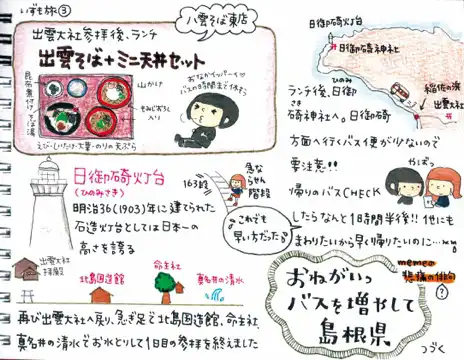 いずも旅③
出雲大社参拝後、ランチ
八雲そば東店
出雲そば+ミニ天丼セット
昆布煮付け
そば湯
山かけ
もみじおろし入り
えび・しいたけ・大葉・のりの天ぷら
おなかイッパーイ♡
バスの時間まで休もう
日御碕灯台
日御碕神社
稲佐の浜
出雲大社
ランチ後、日御碕
ひのみさき
碕神社へ。日御碕
方面へ行くバス便が少ないので
要注意!!
やばっ
帰りのバスCHECK
したらなんと1時間半後!!他にも
まわりたいから早く帰りたいのに…
日御碕灯台
(ひのみさき)
163段
急ならせん階段
明治36(1903)年に建てられた
石造灯台としては日本一の
高さを誇る
これでも早い方だった
出雲大社
拝殿
北島国造館
命主社
真名井の清水
再び出雲大社へ戻り、急ぎ足で北島国造館、命主社、
真名井の清水でお水とりして1日目の参拝を終えました
memeの
悲痛の俳句
?
おねがいっ
バスを増やして
島根県
つづく